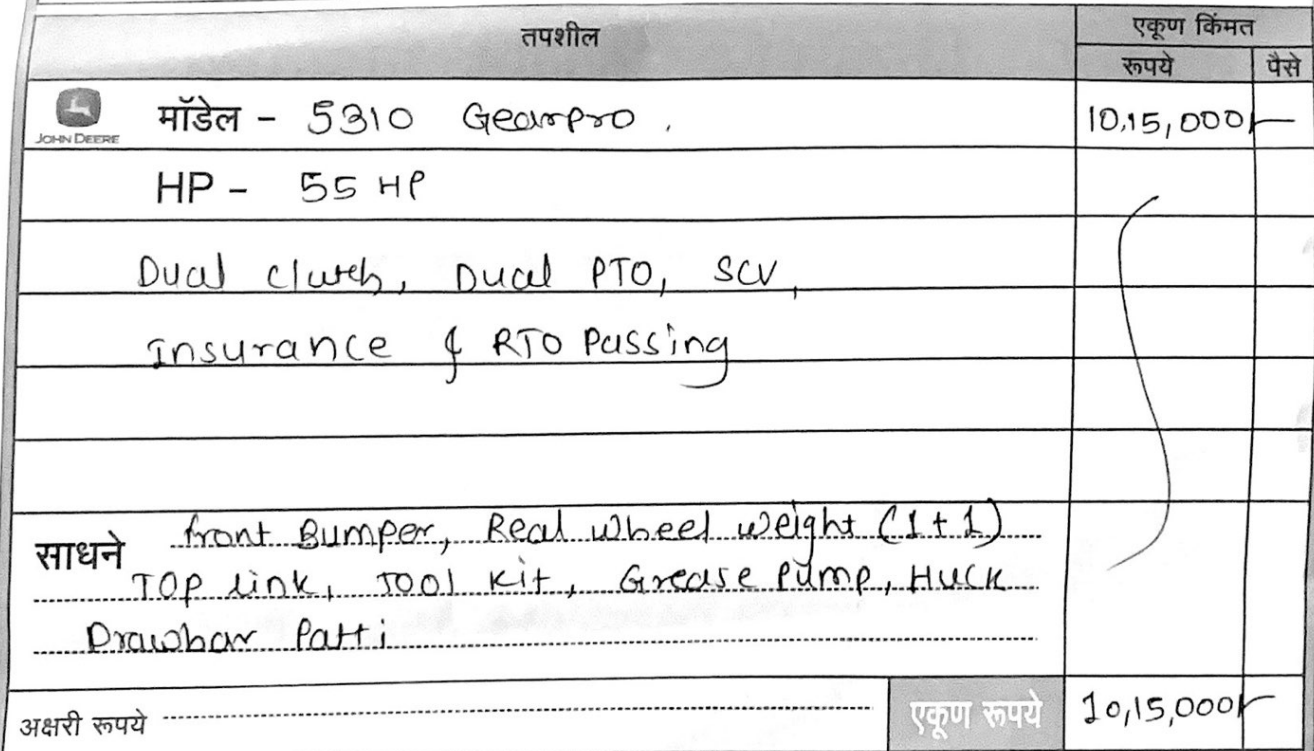 तपशील
एकूण किंमत
रूपये
पैसे
JOHN DEERE
मॉडेल - 5310 Gearpro.
10,15,000/-
HP - 55 HP
Dual clutch, Dual PTO, SCV,
Insurance & RTO Passing
साधने front Bumper, Real wheel weight (1+1)
TOP link, Tool kit, Grease Pump, Huck
Drawbar Patti
अक्षरी रूपये
एकूण रूपये
10,15,000/-